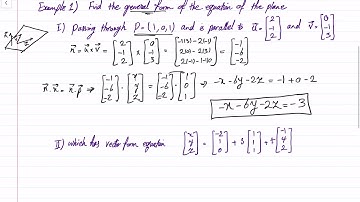 Example 1) Find the general form of the equation of the plane
I) Passing through P = (1,0,1) and is parallel to u⃗ = [2 -1 2] and v⃗ = [0 -1 3]
n⃗ = u⃗ × v⃗ = [2 -1 2] × [0 -1 3] = [-1(3) - 2(-1) 2(0) - 2(3) 2(-1) - 1(0)] = [-1 -6 -2]
n⃗ · x⃗ = n⃗ · p⃗ → [-1 -6 -2] · [x y z] = [-1 -6 -2] · [1 0 1] → -x - 6y - 2z = -1 + 0 - 2
-x - 6y - 2z = -3
II) which has vector form equation [x y z] = [-2 1 0] + s [1 1 1] + t [-1 4 2]